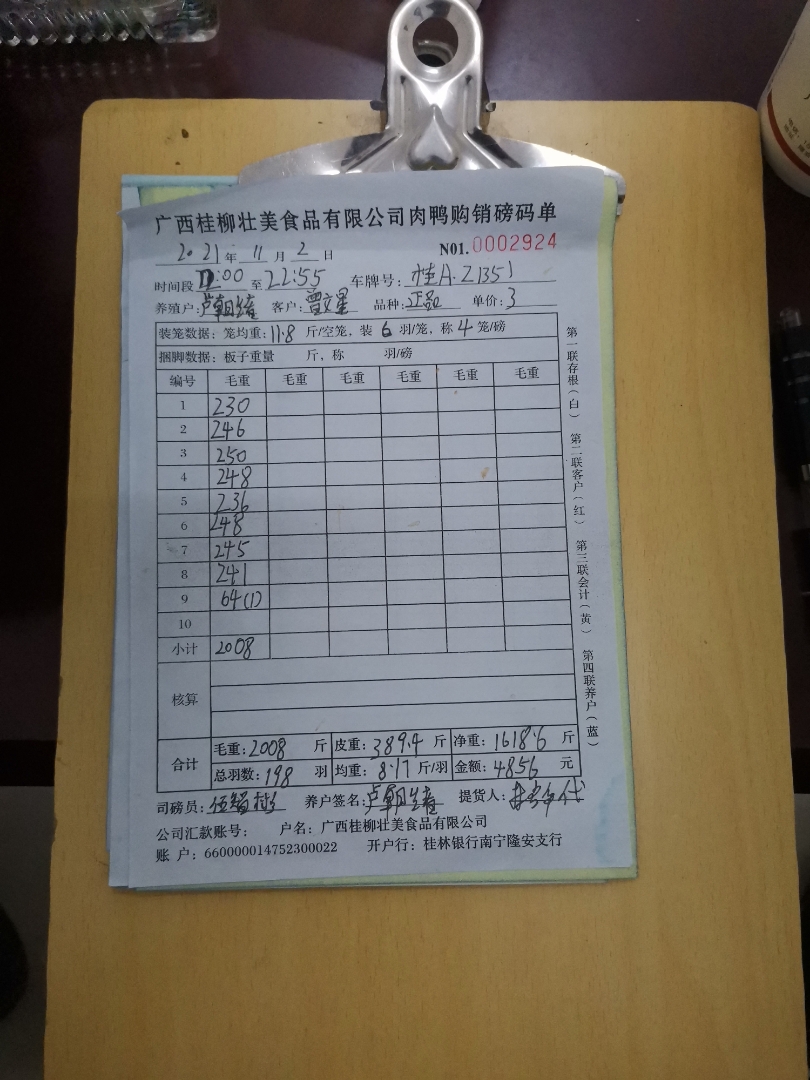 广西桂柳壮美食品有限公司肉鸭购销磅码单
2021年 11月 2日 N01.0002924
时间段 :00 至 22:55 车牌号: 桂A.Z1351
养殖户: 客户: 曾文星 品种: 正品 单价: 3
装笼数据: 笼均重: 11.8 斤/空笼, 装 6 羽/笼, 称 4 笼/磅
捆脚数据: 板子重量 斤, 称 羽/磅
编号 毛重 毛重 毛重 毛重 毛重 毛重
1 230
2 246
3 250
4 248
5 236
6 248
7 245
8 241
9 64(1)
10
小计 2008
核算
合计 毛重: 2008 斤 皮重: 389.4 斤 净重: 1618.6 斤
总羽数: 198 羽 均重: 8.17 斤/羽 金额: 4856 元
司磅员: 养户签名: 提货人:
公司汇款账号: 户名: 广西桂柳壮美食品有限公司
账 户: 660000014752300022 开户行: 桂林银行南宁隆安支行
第一联存根(白) 第二联客户(红) 第三联会计(黄) 第四联养户(蓝)